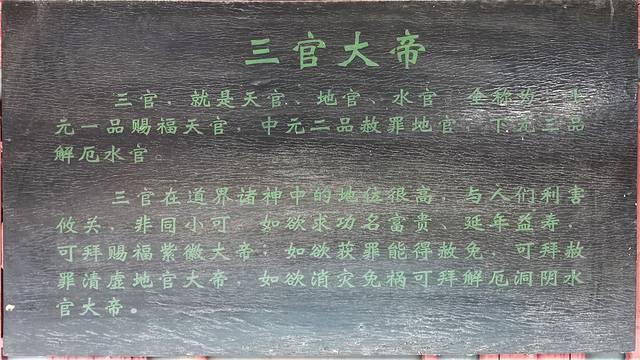 三官大帝
三官，就是天官、地官、水官，全称为：上
元一品赐福天官，中元二品赦罪地官，下元三品
解厄水官。
三官在道界诸神中的地位很高，与人们利害
攸关，非同小可，如欲求功名富贵、延年益寿，
可拜赐福紫徽大帝；如欲获罪能得赦免，可拜赦
罪清虚地官大帝，如欲消灾免祸可拜解厄洞阴水
官大帝。